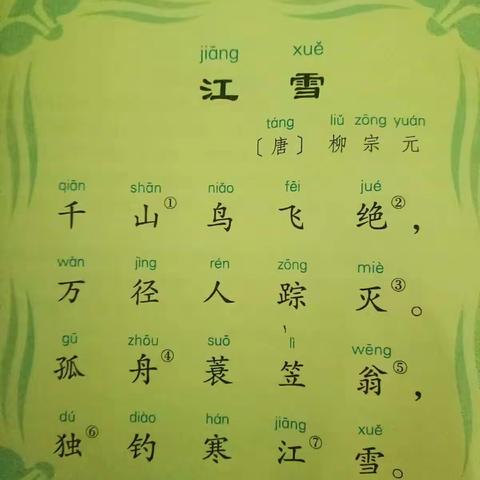 jiāng xuě
江 雪
táng liǔ zōng yuán
〔唐〕 柳 宗 元
qiān shān niǎo fēi jué
千 山① 鸟 飞 绝②，
wàn jìng rén zōng miè
万 径 人 踪 灭③。
gū zhōu suō lì wēng
孤 舟④ 蓑 笠 翁⑤，
dú diào hán jiāng xuě
独⑥ 钓 寒 江⑦ 雪。